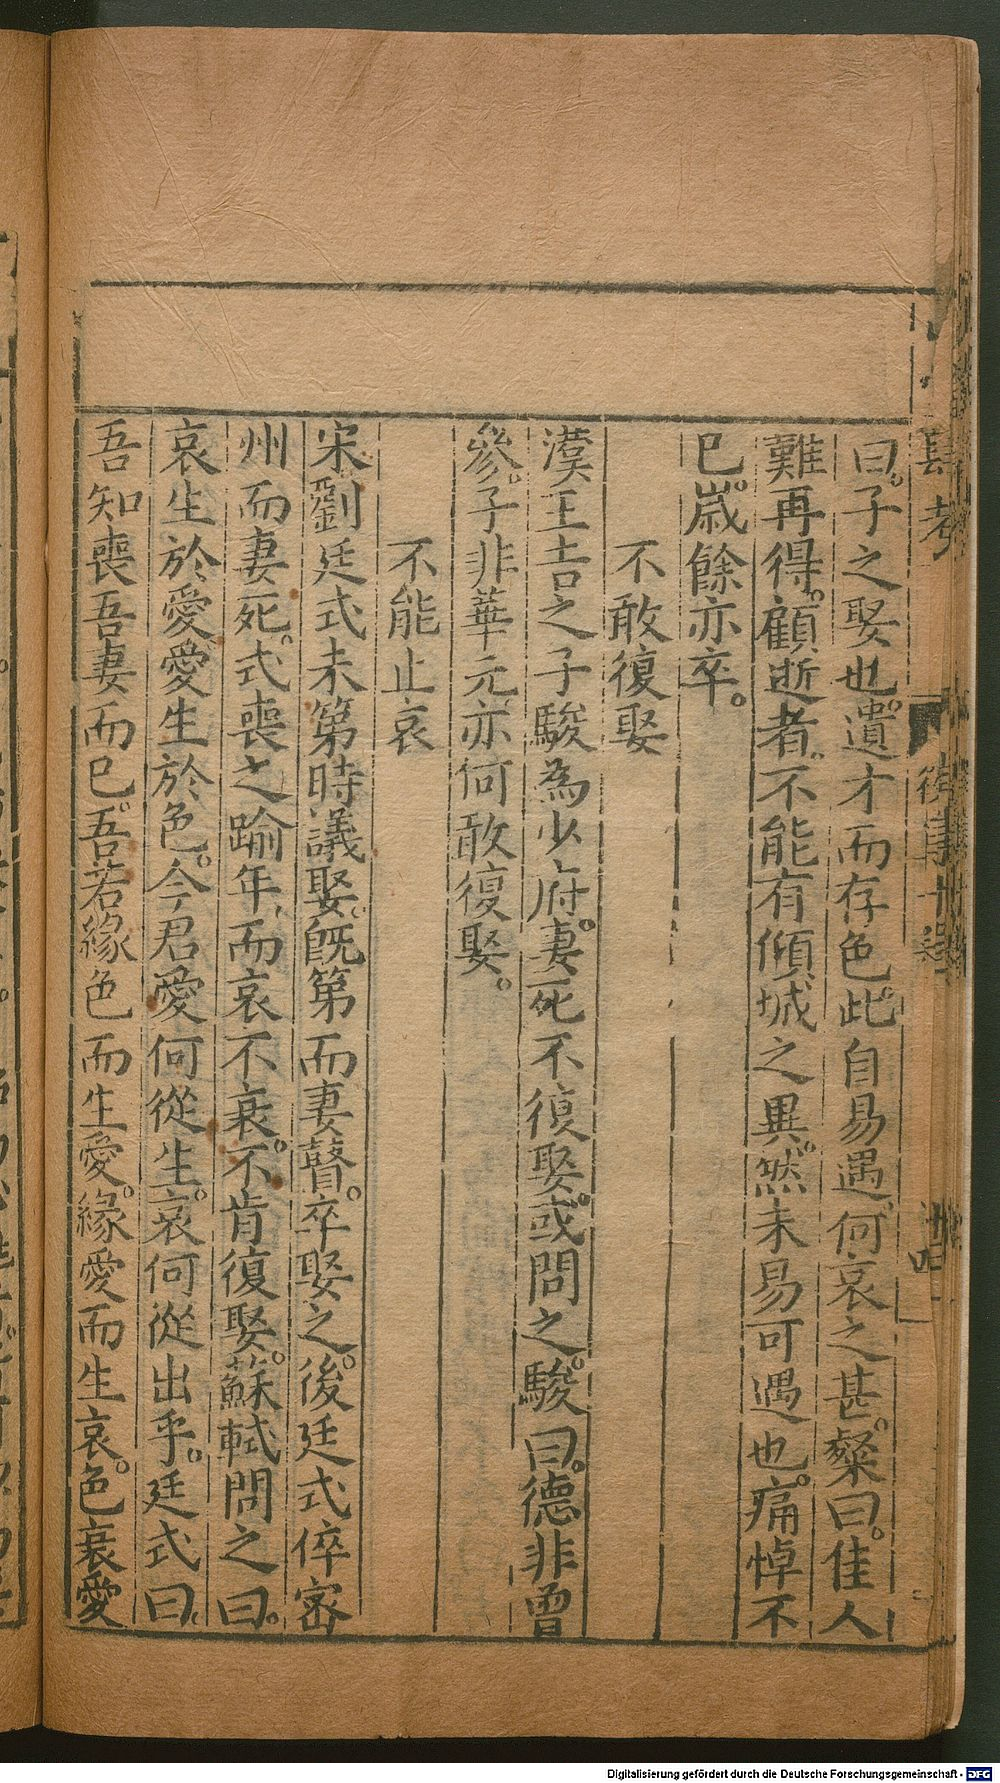 曰。子之娶也。遺才而存色。此自易遇。何哀之甚。粲曰。佳人
難再得。顧逝者。不能有傾城之異。然未易可遇也。痛悼不
已。歲餘亦卒。
不敢復娶
漢王吉之子駿為少府。妻死不復娶。或問之。駿曰。德非曾
參。子非華元。亦何敢復娶。
不能止哀
宋劉廷式未第時議娶。旣第而妻瞽。卒娶之。後廷式倅密
州而妻死。式喪之踰年。而哀不衰。不肯復娶。蘇軾問之曰。
哀生於愛。愛生於色。今君愛何從生。哀何從出乎。廷式曰。
吾知喪吾妻而已。吾若緣色而生愛。緣愛而生哀。色衰愛
Digitalisierung gefördert durch die Deutsche Forschungsgemeinschaft - DFG